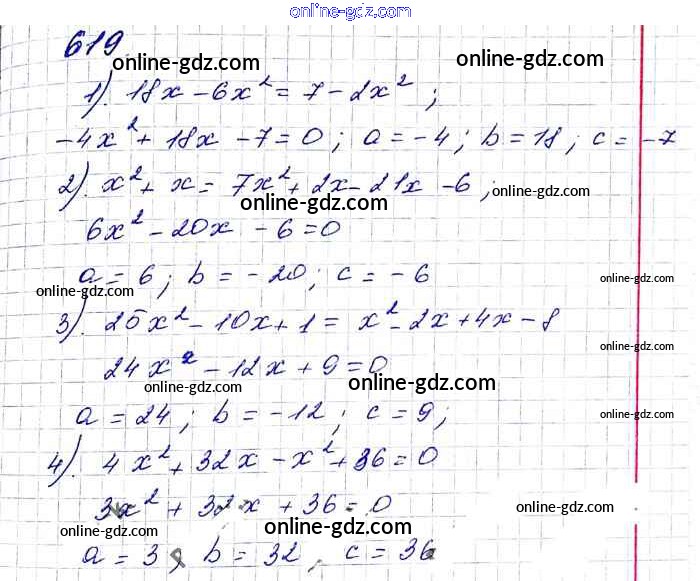 online-gdz.com
619
online-gdz.com online-gdz.com
1). 18x - 6x² = 7 - 2x² ;
online-gdz.com
-4x² + 18x - 7 = 0 ; a = -4 ; b = 18 ; c = -7
2). x² + x = 7x² + 2x - 21x - 6 ;
online-gdz.com online-gdz.com
6x² - 20x - 6 = 0
online-gdz.com
a = 6 ; b = -20 ; c = -6
online-gdz.com online-gdz.com
3). 25x² - 10x + 1 = x² - 2x + 4x - 8
24x² - 12x + 9 = 0
online-gdz.com online-gdz.com
a = 24 ; b = -12 ; c = 9 ;
online-gdz.com
4). 4x² + 32x - x² + 36 = 0
online-gdz.com
3x² + 32x + 36 = 0
online-gdz.com online-gdz.com online-gdz.com
a = 3 ; b = 32 ; c = 36
online-gdz.com